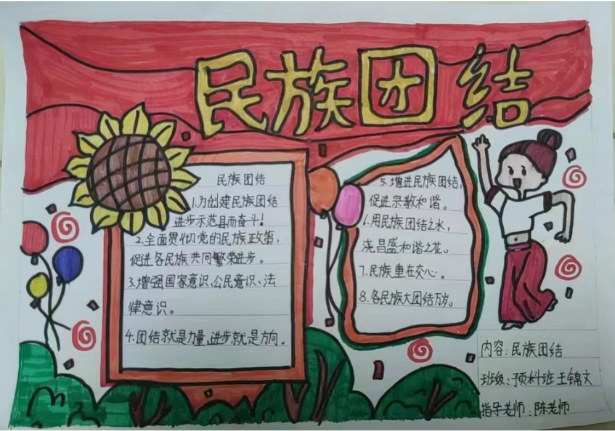 民族团结
民族团结
1.为创建民族团结
进步示范县而奋斗!
2.全面贯彻党的民族政策,
促进各民族共同繁荣进步。
3.增强国家意识、公民意识、法
律意识。
4.团结就是力量,进步就是方向。
5.增进民族团结,
促进宗教和谐。
6.用民族团结之水,
浇昌盛和谐之花。
7.民族重在交心。
8.各民族大团结万岁。
内容:民族团结
班级:预科班 王锦文
指导老师:陈老师